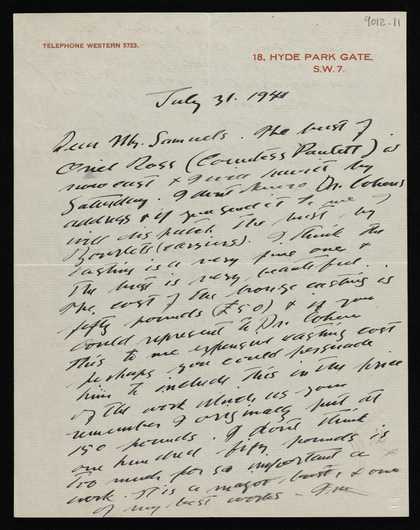 9012-11
TELEPHONE WESTERN 5723.
18, HYDE PARK GATE,
S.W. 7.
July 31. 1941
Dear Mr. Samuels. The bust of
Oriel Ross (Countess Paulett) is
now cast & I will have it by
Saturday. I don't know Dr. Cohens
address & if you send it to me I
will dispatch the bust by
Bowlets (carriers). I think the
casting is a very fine one &
the bust is very beautiful.
The cost of the bronze casting is
fifty pounds (£50) & if you
could represent to Dr. Cohen
this to me expensive casting cost
perhaps you could persuade
him to include this in the price
of the work which as you
remember I originally put at
150 pounds. I don't think
one hundred fifty pounds is
too much for so important a
work. It is a major bust, & one
of my best works -